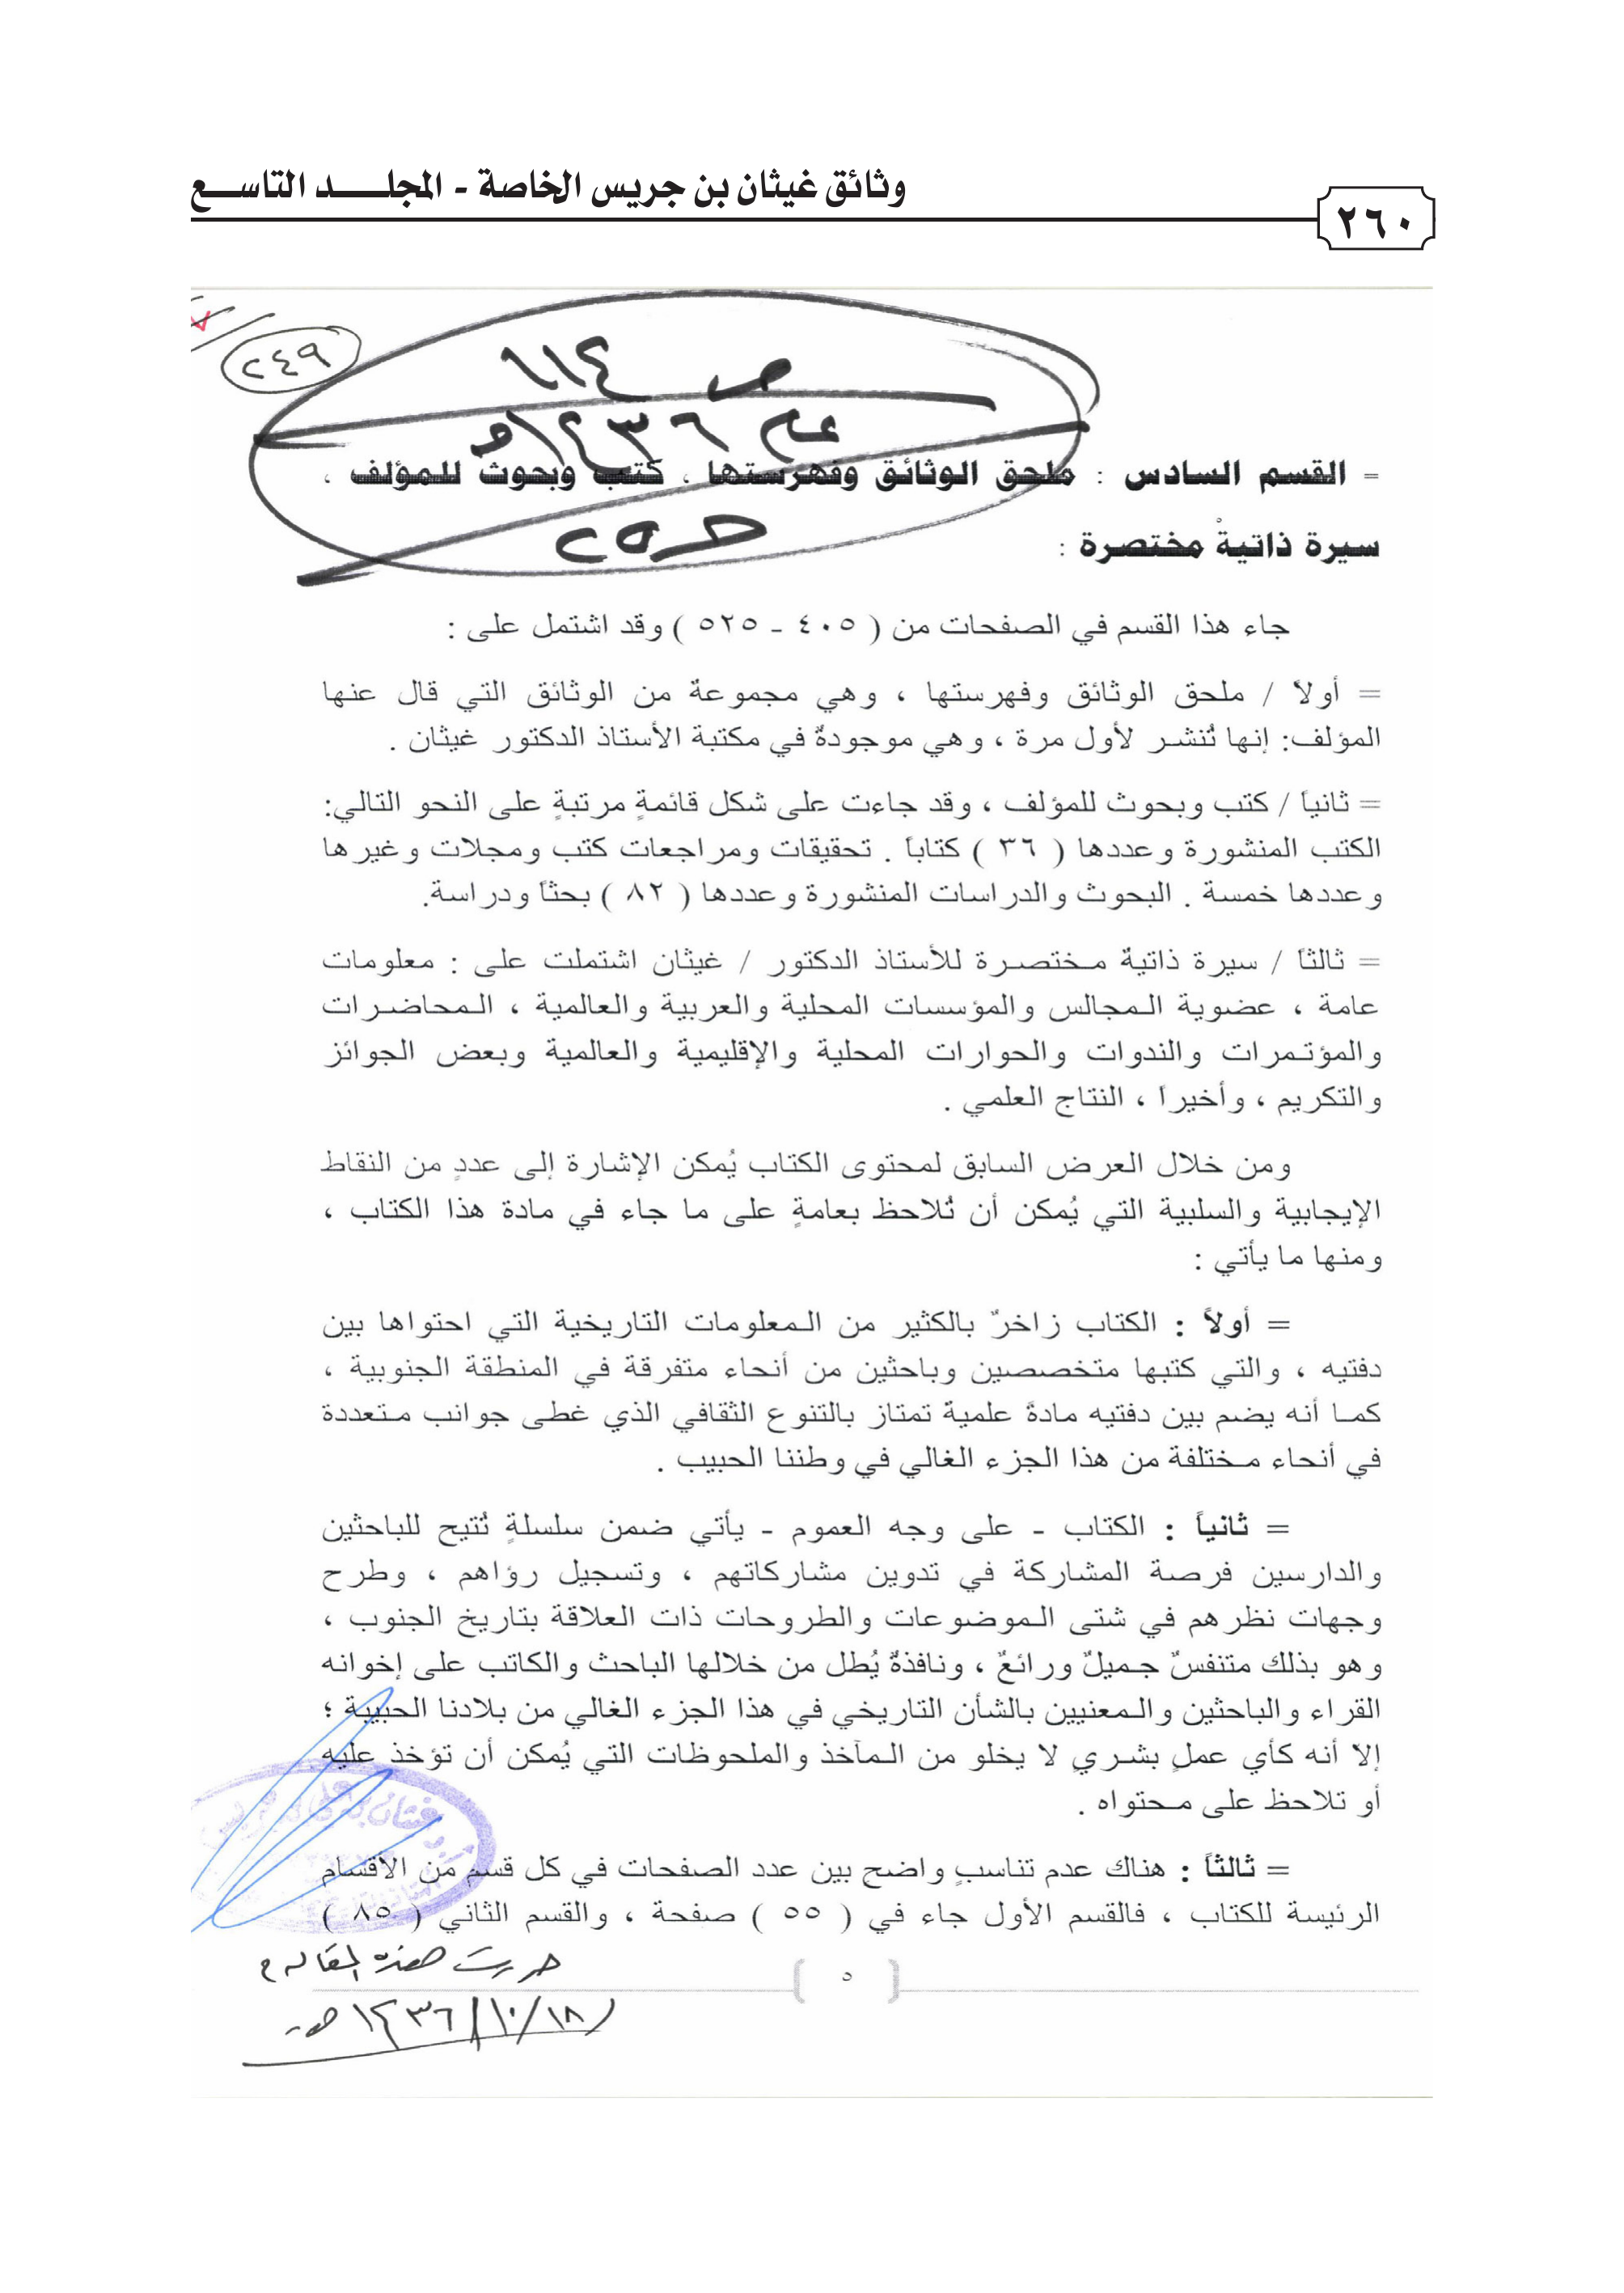 وثائق غيثان بن جريس الخاصة - المجلـــد التاســـع
٢٦٠
٢٤٩
ص ٦١٤
عام ١٤٣٦هـ
= القسم السادس : ملحق الوثائق وفهرستها ، كتب وبحوث للمؤلف ،
سيرة ذاتية مختصرة :
جاء هذا القسم في الصفحات من ( ٤٠٥ - ٥٢٥ ) وقد اشتمل على :
= أولاً / ملحق الوثائق وفهرستها ، وهي مجموعةٌ من الوثائق التي قال عنها
المؤلف: إنها تُنشر لأول مرة ، وهي موجودةٌ في مكتبة الأستاذ الدكتور غيثان .
= ثانياً / كتب وبحوث للمؤلف ، وقد جاءت على شكل قائمةٍ مرتبةٍ على النحو التالي:
الكتب المنشورة وعددها ( ٣٦ ) كتاباً . تحقيقات ومراجعات كتب ومجلات وغيرها
وعددها خمسة . البحوث والدراسات المنشورة وعددها ( ٨٢ ) بحثاً ودراسة.
= ثالثاً / سيرة ذاتيةٌ مختصرة للأستاذ الدكتور / غيثان اشتملت على : معلومات
عامة ، عضوية المجالس والمؤسسات المحلية والعربية والعالمية ، المحاضرات
والمؤتمرات والندوات والحوارات المحلية والإقليمية والعالمية وبعض الجوائز
والتكريم ، وأخيراً ، النتاج العلمي .
ومن خلال العرض السابق لمحتوى الكتاب يُمكن الإشارة إلى عددٍ من النقاط
الإيجابية والسلبية التي يُمكن أن تُلاحظ بعامةٍ على ما جاء في مادة هذا الكتاب ،
ومنها ما يأتي :
= أولاً : الكتاب زاخرٌ بالكثير من المعلومات التاريخية التي احتواها بين
دفتيه ، والتي كتبها متخصصين وباحثين من أنحاء متفرقة في المنطقة الجنوبية ،
كما أنه يضم بين دفتيه مادةً علميةً تمتاز بالتنوع الثقافي الذي غطى جوانب متعددة
في أنحاء مختلفة من هذا الجزء الغالي في وطننا الحبيب .
= ثانياً : الكتاب - على وجه العموم - يأتي ضمن سلسلةٍ تُتيح للباحثين
والدارسين فرصة المشاركة في تدوين مشاركاتهم ، وتسجيل رؤاهم ، وطرح
وجهات نظرهم في شتى الموضوعات والطروحات ذات العلاقة بتاريخ الجنوب ،
وهو بذلك متنفسٌ جميلٌ ورائعٌ ، ونافذةٌ يُطل من خلالها الباحث والكاتب على إخوانه
القراء والباحثين والمعنيين بالشأن التاريخي في هذا الجزء الغالي من بلادنا الحبيبة ؛
إلا أنه كأي عملٍ بشريٍ لا يخلو من المآخذ والملحوظات التي يُمكن أن تؤخذ عليه
أو تلاحظ على محتواه .
= ثالثاً : هناك عدم تناسبٍ واضح بين عدد الصفحات في كل قسم من الأقسام
الرئيسة للكتاب ، فالقسم الأول جاء في ( ٥٥ ) صفحة ، والقسم الثاني ( ٨٥ )
٥
حررت هذه المقالة
١٤٣٦/١٠/١٨هـ